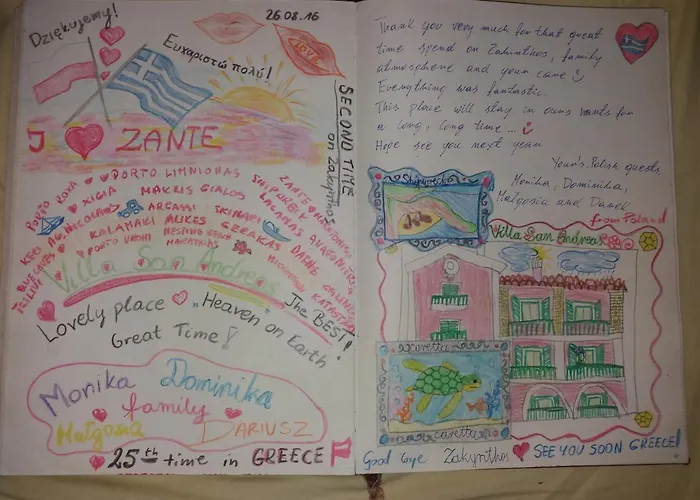 Dziękujemy!
26.08.16
LOVE
Ευχαριστώ πολύ!
I ZANTE
SECOND TIME
on Zakynthos
PORTO ROXA
PORTO LIMNIONAS
ZANTE
XIGIA
MAKRIS GIALOS
SHIPWRECK
LAGANAS
KERI
AG. NICOLAOS
ARGASSI
SKINARI
KALAMAKI
ALIKES
GERAKAS
DAFNE
BLUE CAVES
PORTO VROMI
MARATHIAS
TSILIVI
Villa San Andreas
Lovely place "Heaven" on Earth
The BEST!
Great Time!
Monika Dominika
family
Małgosia DARIUSZ
25th time in GREECE
Thank you very much for that great
time spend on Zakinthos, family
atmosphere and your care
Everything was fantastic.
This place will stay in ours hearts for
a long, long time...
Hope see you next year
Your's Polish guests,
Monika, Dominika,
Małgosia and Darek
from Poland
Shipwreck
Villa San Andreas
caretta
caretta
Good bye Zakynthos SEE YOU SOON GREECE!